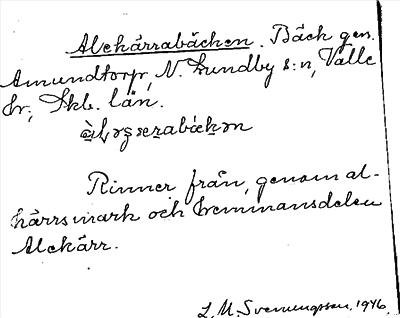 Alekärrabäcken. Bäck gen.
Amundtorp, N. Lundby s:n, Valle
hr, Skb. län.
Rinner från, genom al-
kärrsmark och hemmansdelen
Alekärr.
L. M. Svennungsson, 1946.